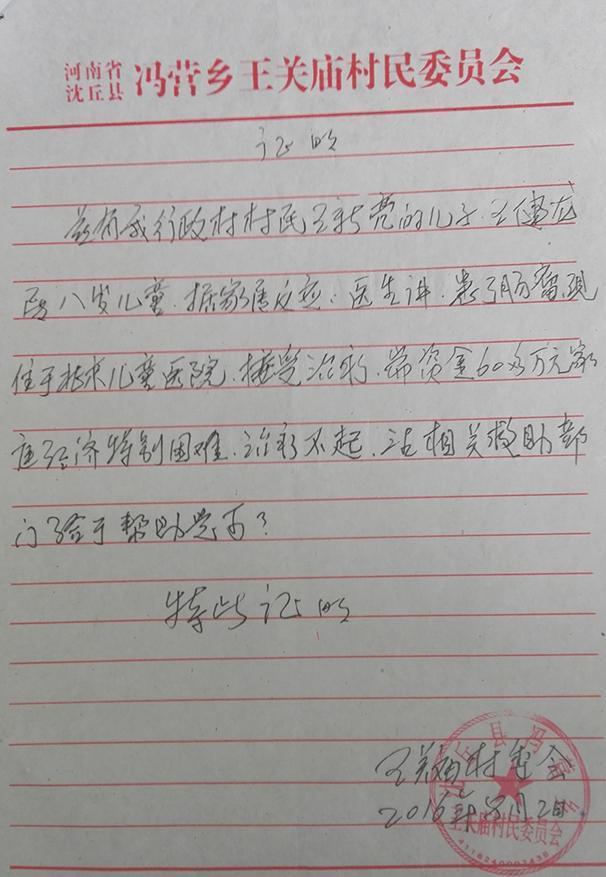 河南省
沈丘县 冯营乡王关庙村民委员会
证明
兹有我行政村村民王新亮的儿子.王健龙
8岁儿童.据家属反应.医生讲.患了肠瘤现
住于北京儿童医院.接受治疗.需资金60多万元家
庭经济特别困难.治疗不起.请相关救助部
门给予帮助是可?
特此证明
王关庙村委会
2016年8月2日
王关庙村民委员会